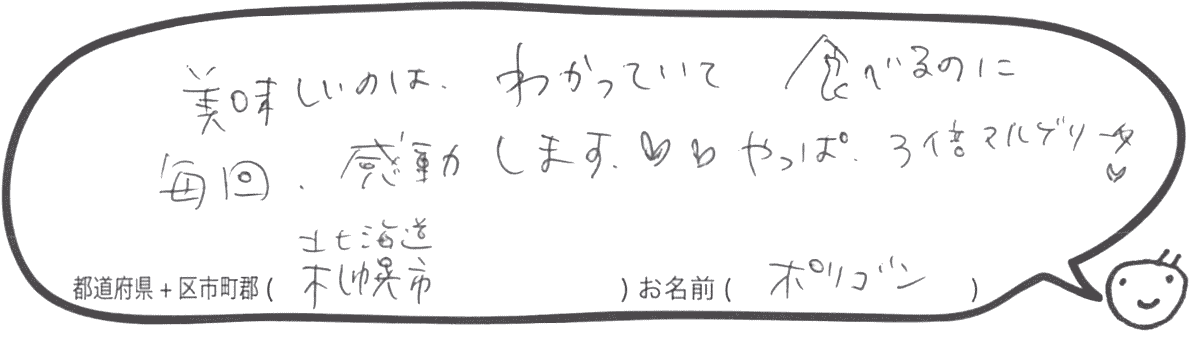 美味しいのは、わかっていて 食べるのに
毎回、感動します、♡♡ やっぱ、3倍マルゲリータ♡
北海道
都道府県+区市町郡( 札幌市 )お名前( ポリゴン )